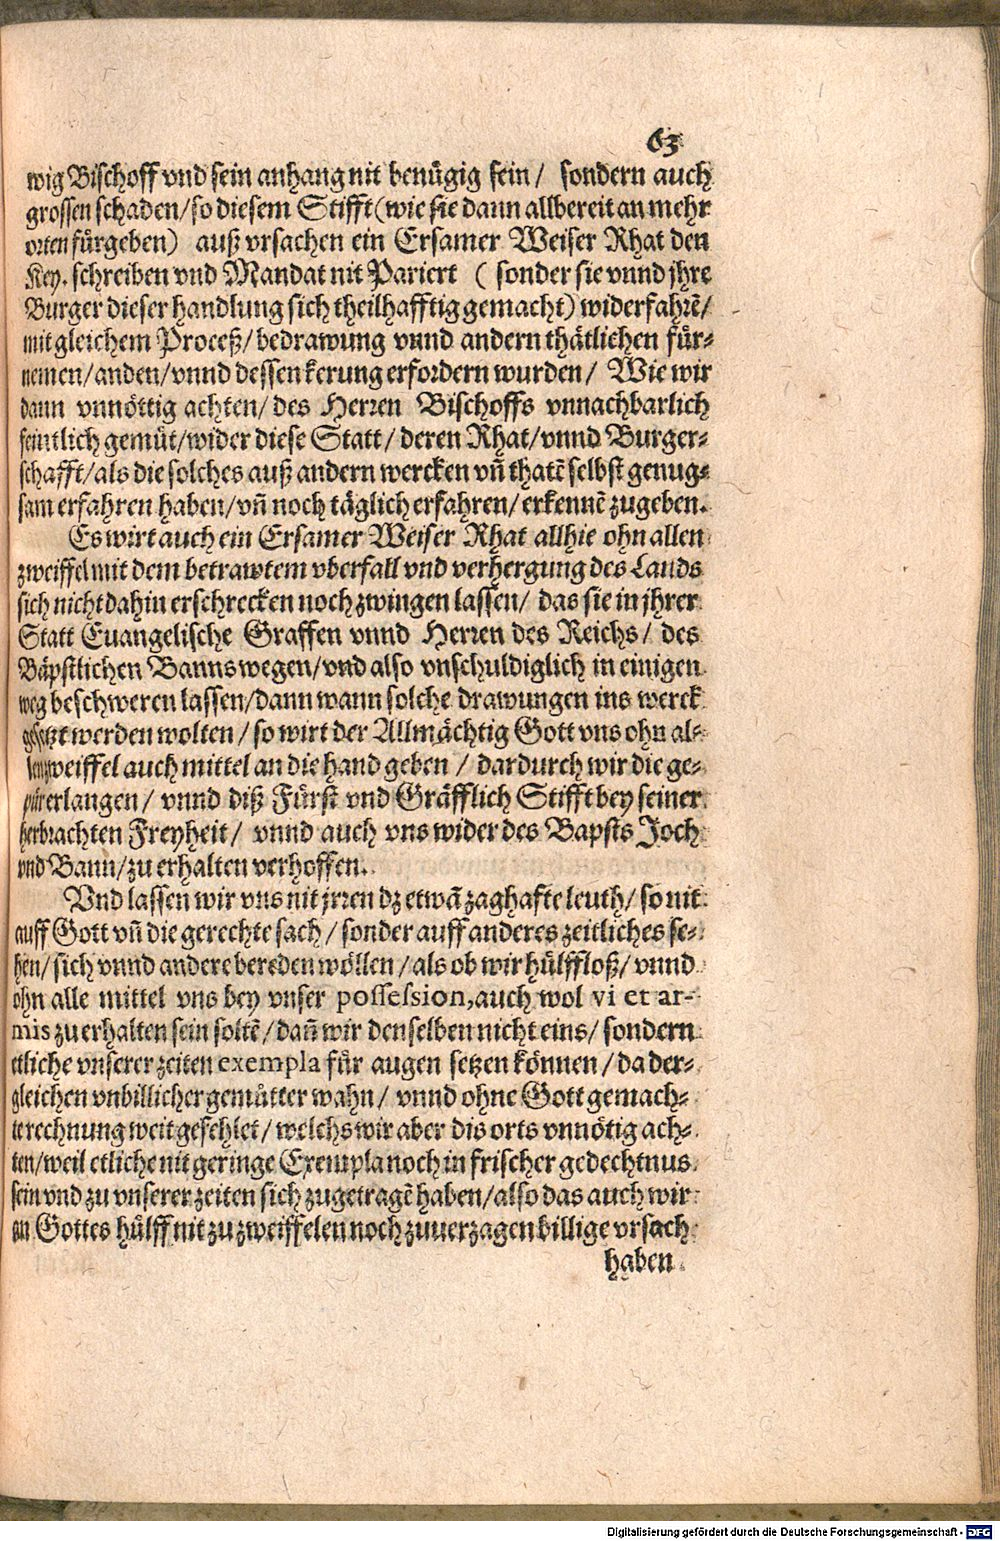 63
wig Bischoff vnd sein anhang nit benügig sein / sondern auch
grossen schaden / so diesem Stifft (wie sie dann allbereit an mehr
orten fürgeben) auß vrsachen ein Ersamer Weiser Rhat den
Key. schreiben vnd Mandat nit Pariert ( sonder sie vnnd jhre
Burger dieser handlung sich theilhafftig gemacht) widerfahrē /
mit gleichem Proceß / bedrawung vnnd andern thätlichen für-
nemen / anden / vnnd dessen kerung erfordern wurden / Wie wir
dann vnnöttig achten / des Herren Bischoffs vnnachbarlich
feintlich gemüt / wider diese Statt / deren Rhat / vnnd Burger-
schafft / als die solches auß andern wercken vñ thatē selbst genug-
sam erfahren haben / vñ noch täglich erfahren / erkennē zugeben.
Es wirt auch ein Ersamer Weiser Rhat allhie ohn allen
zweiffel mit dem betrawtem vberfall vnd verhergung des Lands
sich nicht dahin erschrecken noch zwingen lassen / das sie in jhrer
Statt Euangelische Graffen vnnd Herren des Reichs / des
Bäpstlichen Banns wegen / vnd also vnschuldiglich in einigen
weg beschweren lassen / dann wann solche drawungen ins werck
gesetzt werden wolten / so wirt der Allmächtig Gott vns ohn al-
len zweiffel auch mittel an die hand geben / dardurch wir die ge-
pür erlangen / vnnd diß Fürst vnd Gräfflich Stifft bey seiner
herbrachten Freyheit / vnnd auch vns wider des Bapsts Joch
vnd Bann / zu erhalten verhoffen.
Vnd lassen wir vns nit jrren dz etwā zaghafte leuth / so nit
auff Gott vñ die gerechte sach / sonder auff anderes zeitliches se-
hen / sich vnnd andere bereden wöllen / als ob wir hülffloß / vnnd
ohn alle mittel vns bey vnser possession, auch wol vi et ar-
mis zu erhalten sein soltē / dañ wir denselben nicht eins / sondern
etliche vnserer zeiten exempla für augen setzen können / da der-
gleichen vnbillicher gemütter wahn / vnnd ohne Gott gemach-
te rechnung weit gefehlet / welchs wir aber dis orts vnnötig ach-
ten / weil etliche nit geringe Exempla noch in frischer gedechtnus
sein vnd zu vnserer zeiten sich zugetragē haben / also das auch wir
an Gottes hülff nit zu zweiffelen noch zuuerzagen billige vrsach
haben
Digitalisierung gefördert durch die Deutsche Forschungsgemeinschaft - DFG